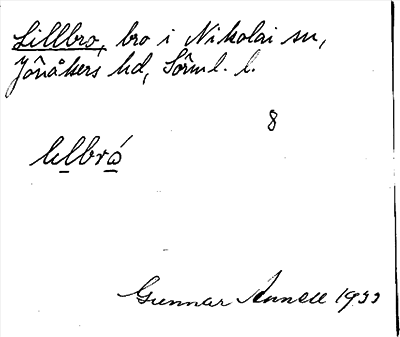 Lillbro, bro i Nikolai sn,
Jönåkers hd, Sörml. l.
8
lilbró
Gunnar Annell 1933